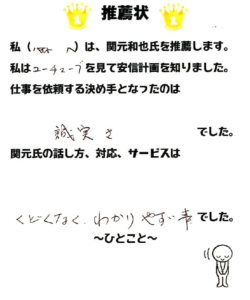 推薦状
私（ ）は、関元和也氏を推薦します。
私はユーチューブを見て安信計画を知りました。
仕事を依頼する決め手となったのは
誠実さ でした。
関元氏の話し方、対応、サービスは
くどくなく、わかりやすい事 でした。
～ひとこと～